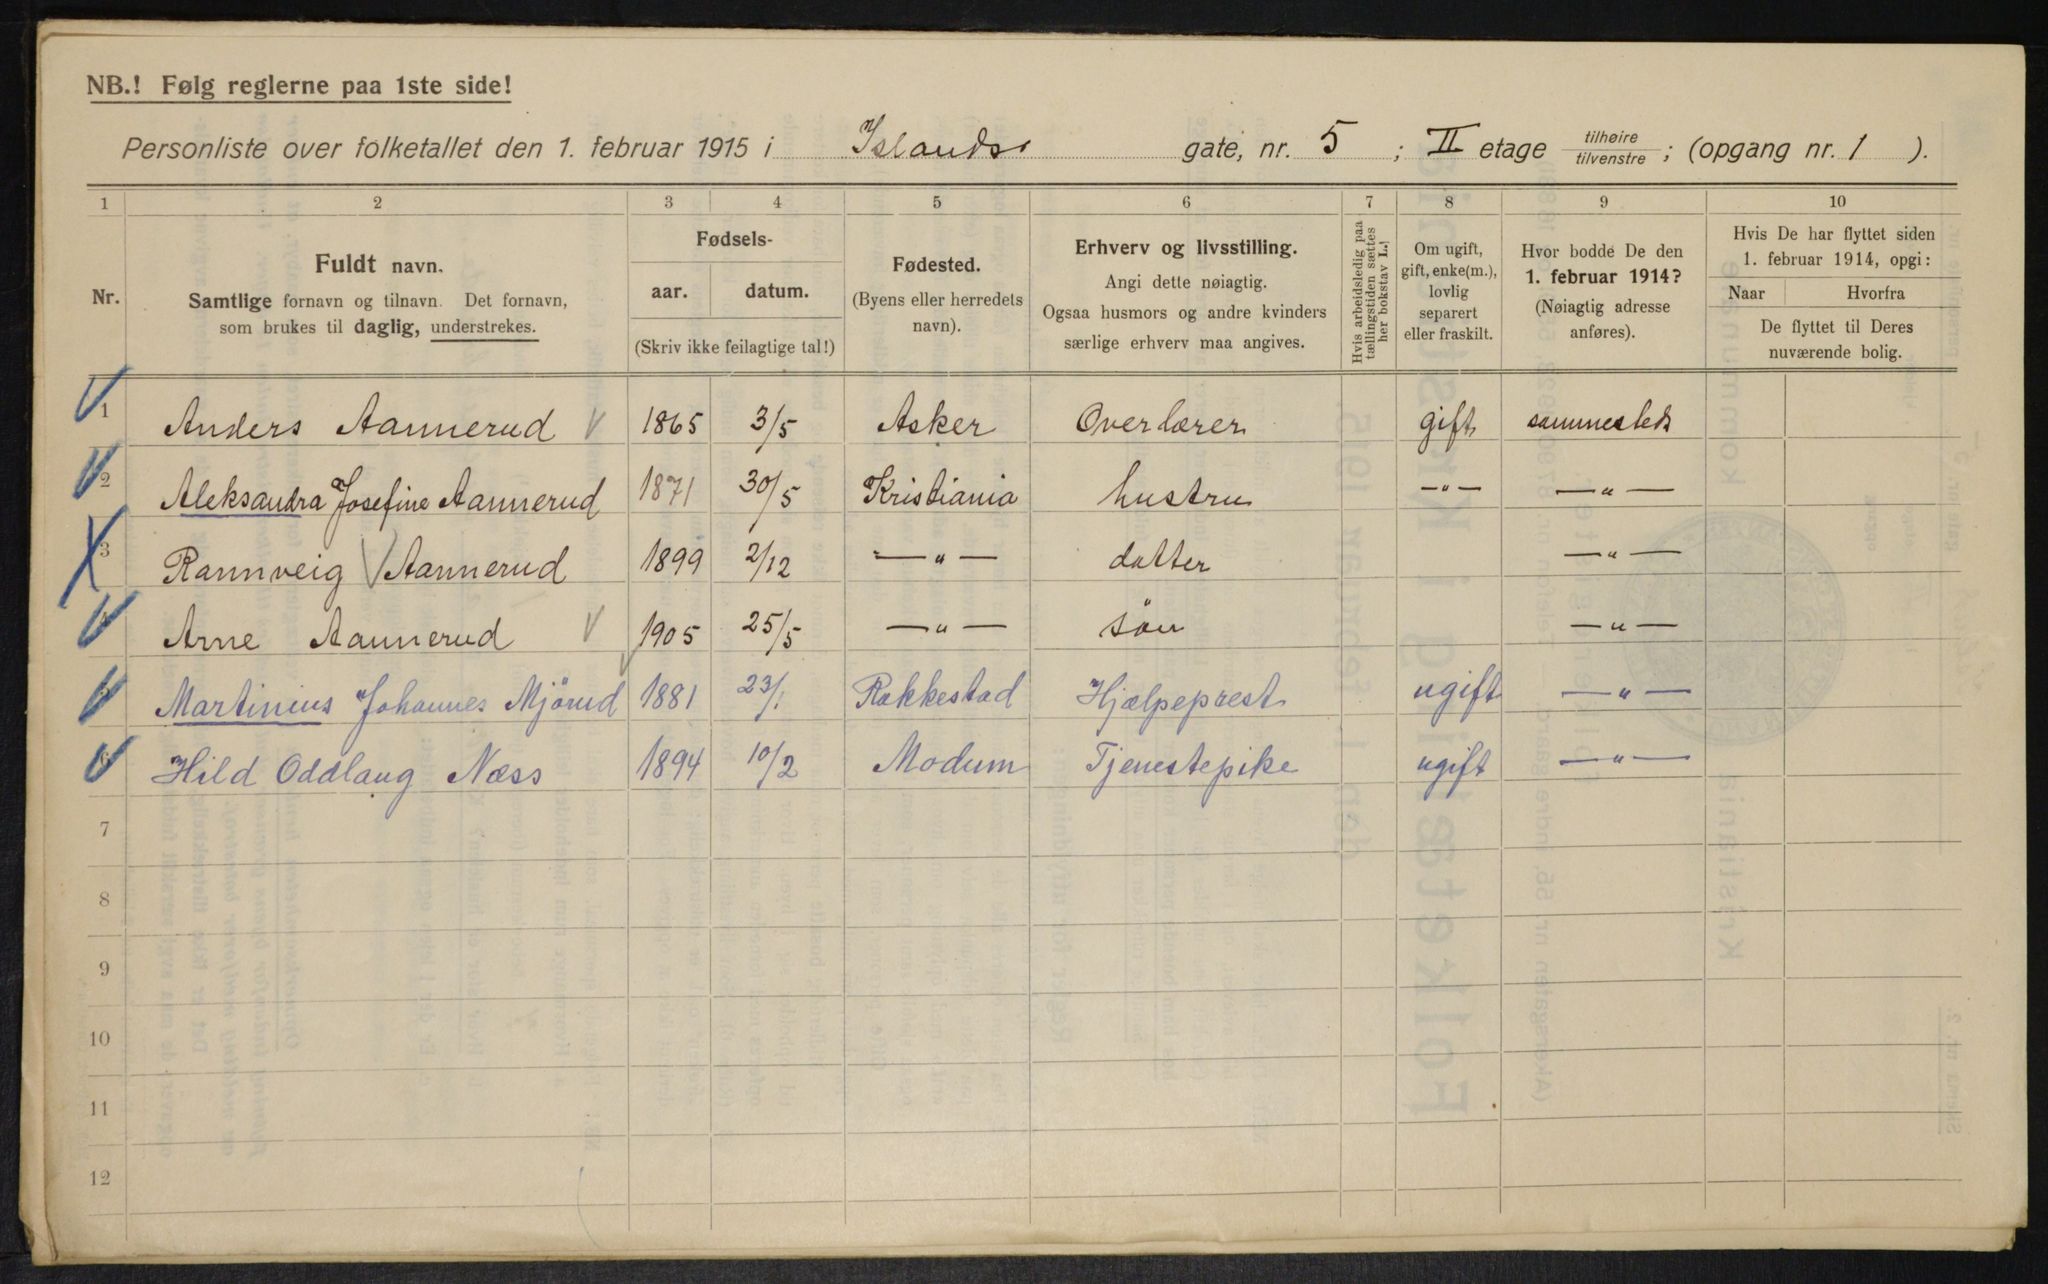 NB.! Følg reglerne paa 1ste side!
Personliste over folketallet den 1. februar 1915 i Islands gate, nr. 5 ; II etage tilhøire tilvenstre ; (opgang nr. 1 ).
1 2 3 4 5 6 7 8 9 10
Nr.
Fuldt navn.
Samtlige fornavn og tilnavn. Det fornavn,
som brukes til daglig, understrekes.
Fødsels-
aar. datum.
(Skriv ikke feilagtige tal!)
Fødested.
(Byens eller herredets
navn).
Erhverv og livsstilling.
Angi dette nøiagtig.
Ogsaa husmors og andre kvinders
særlige erhverv maa angives.
Hvis arbeidsledig paa
tællingstiden sættes
her bokstav L.!
Om ugift,
gift, enke(m.),
lovlig
separert
eller fraskilt.
Hvor bodde De den
1. februar 1914?
(Nøiagtig adresse
anføres).
Hvis De har flyttet siden
1. februar 1914, opgi:
Naar Hvorfra
De flyttet til Deres
nuværende bolig.
1 Anders Aannerud 1865 3/5 Asker Overlærer gift sammesteds
2 Aleksandra Josefine Aannerud 1871 30/5 Kristiania hustru —„— —„—
3 Rannveig Aannerud 1899 2/12 —„— datter —„—
4 Arne Aannerud 1905 25/5 —„— søn —„—
5 Martinius Johannes Mjörud 1881 23/1 Rakkestad Hjælpeprest ugift —„—
6 Hild Oddlaug Næss 1894 10/2 Modum Tjenestepike ugift —„—
7
8
9
10
11
12